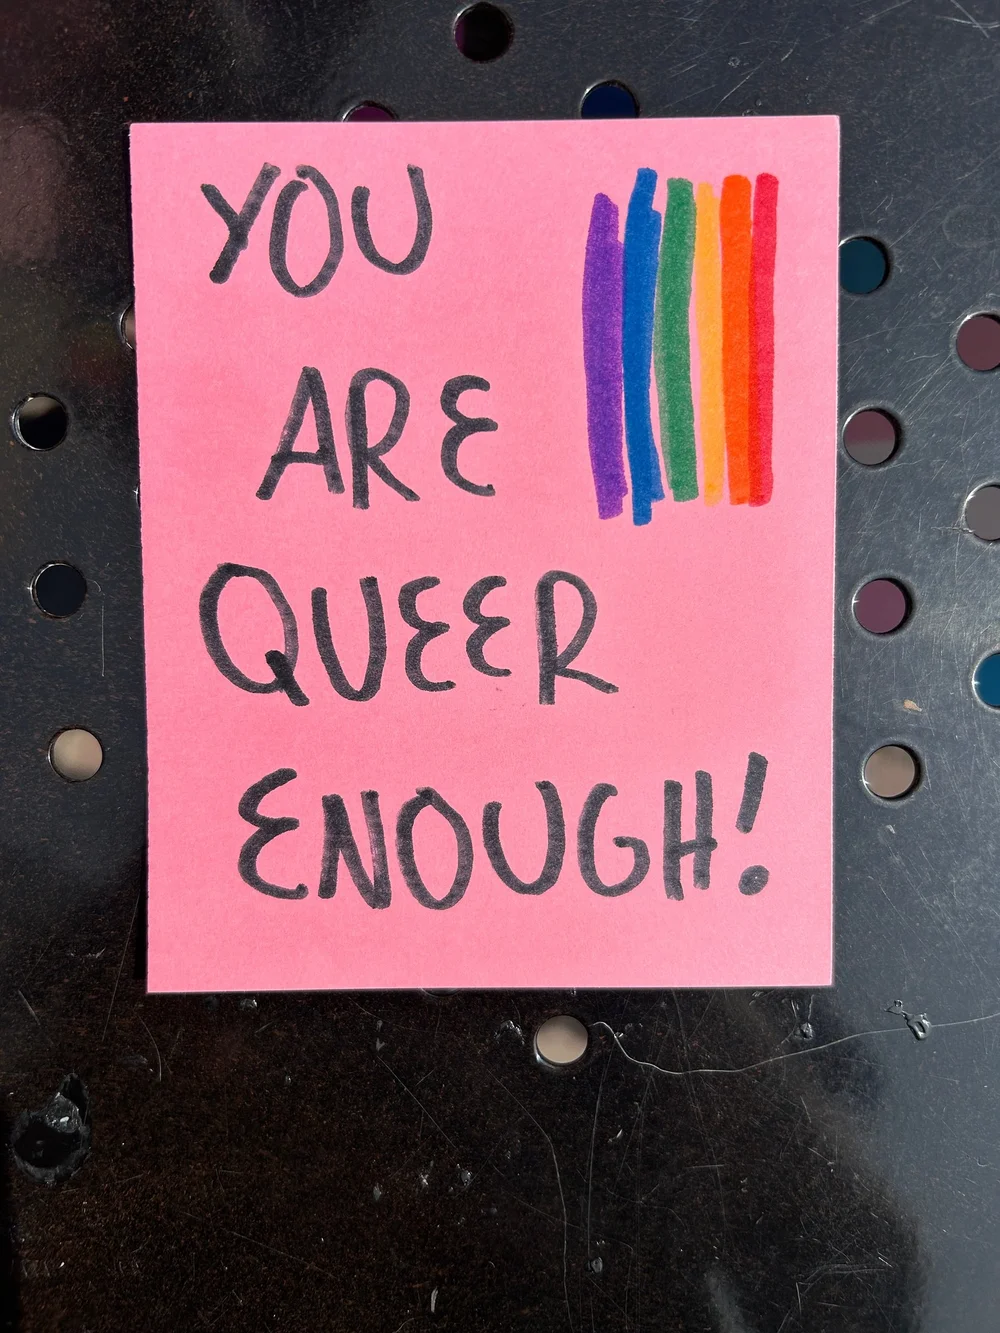 YOU
ARE
QUEER
ENOUGH!